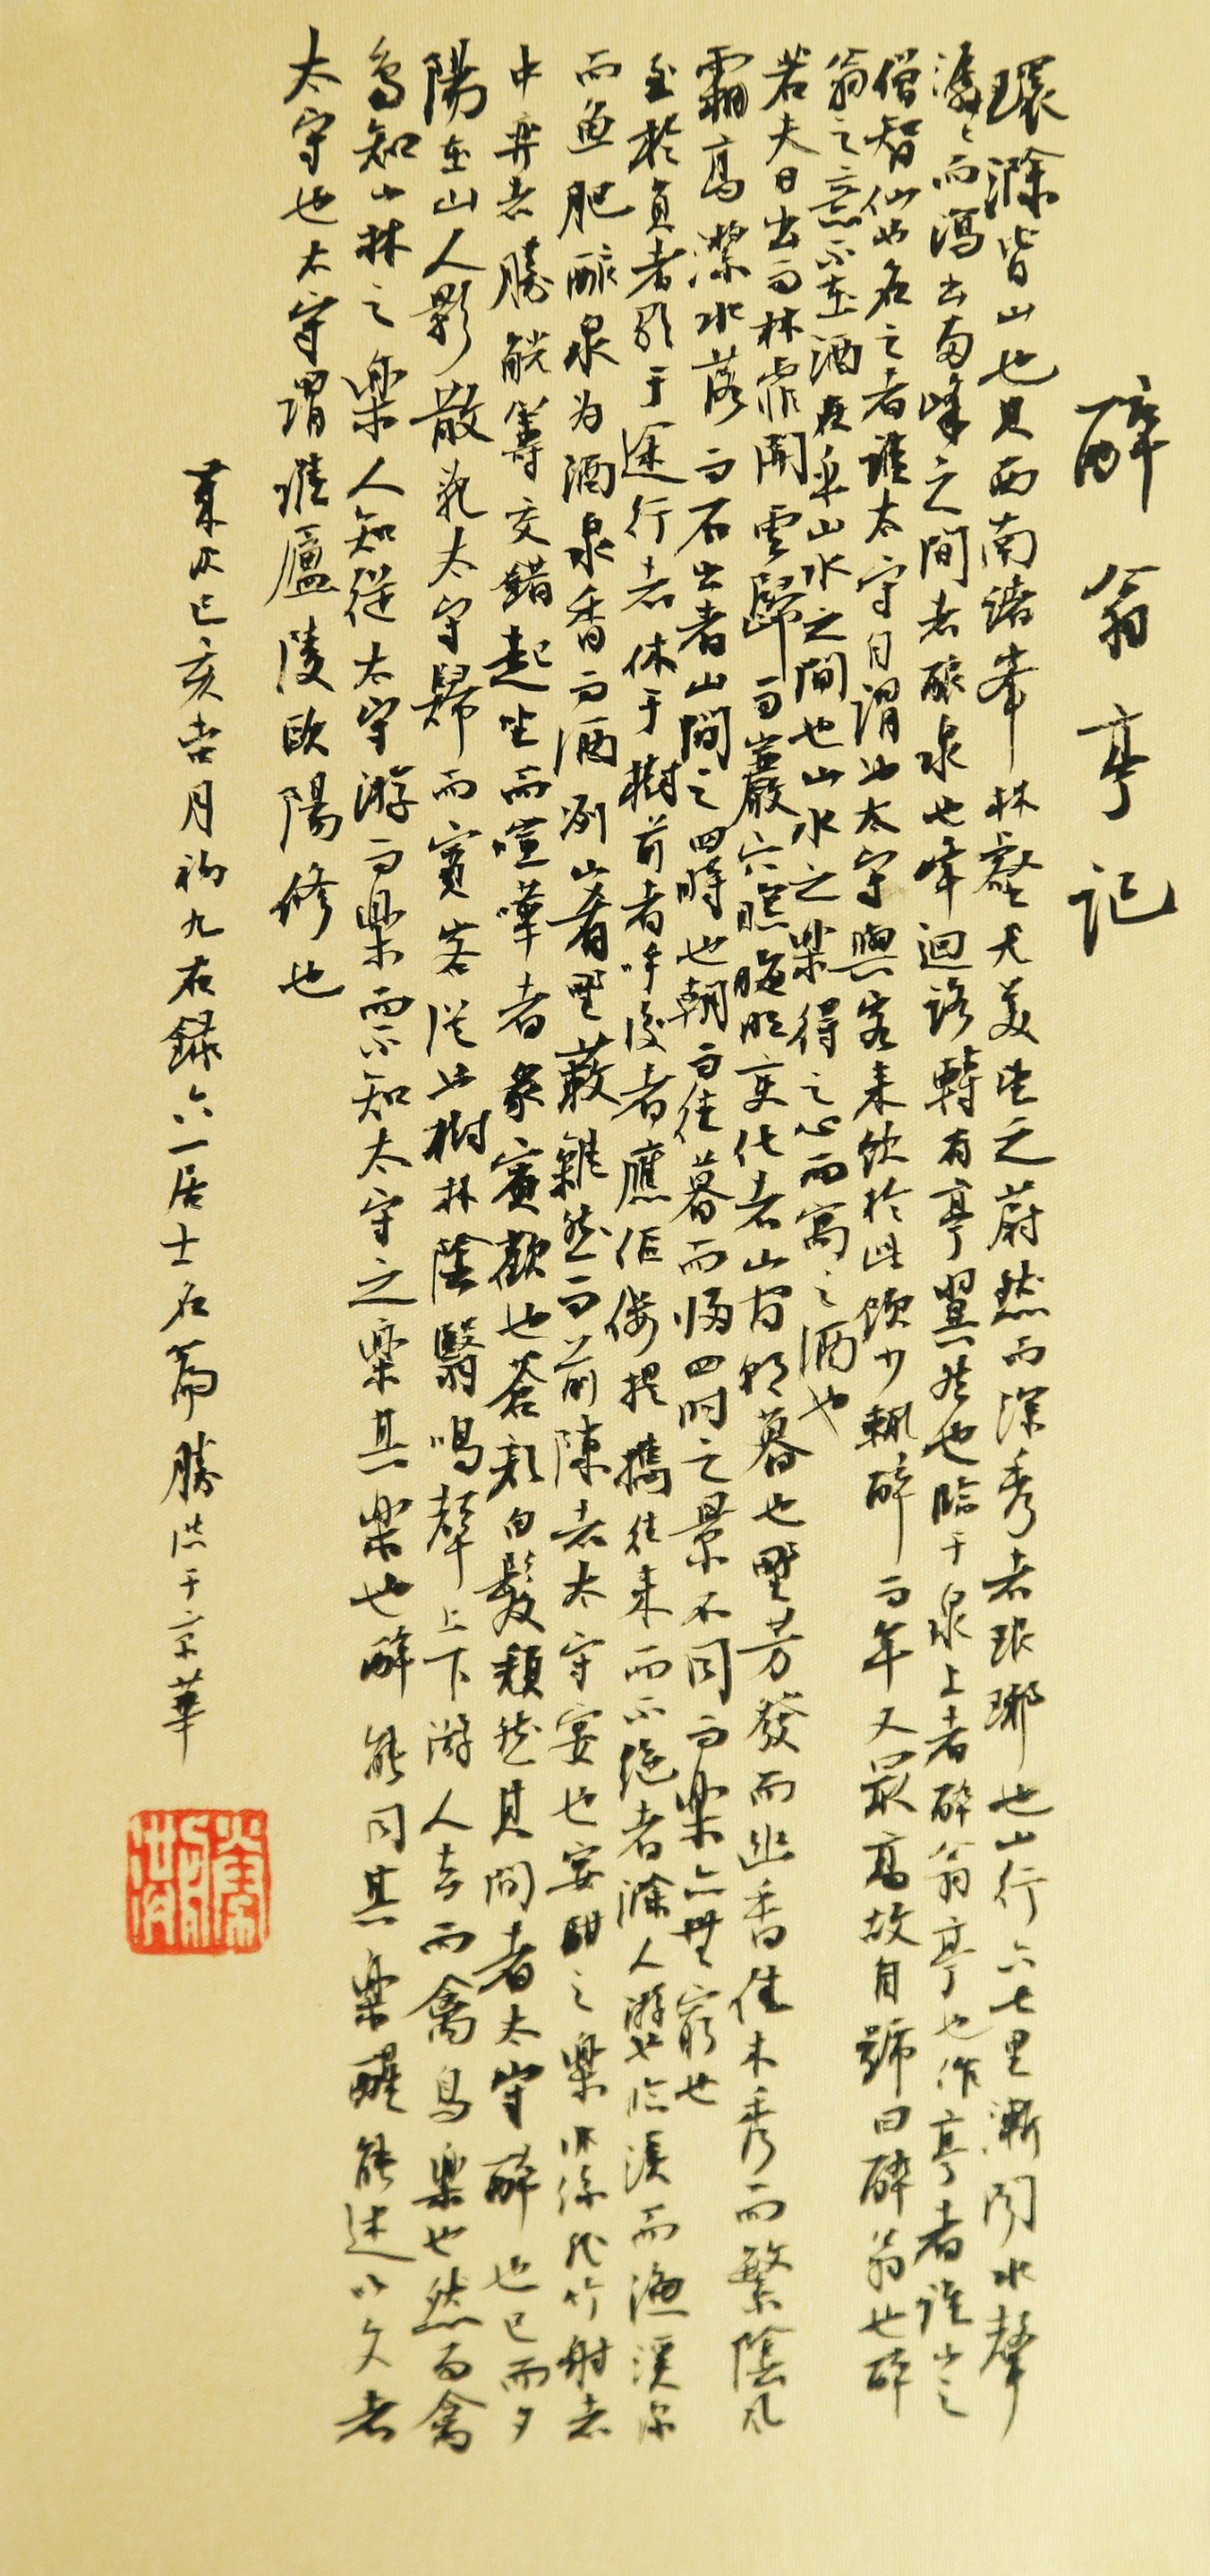 醉翁亭記
環滁皆山也其西南諸峯林壑尤美望之蔚然而深秀者琅琊也山行六七里漸聞水聲
潺々而瀉出兩峰之間者釀泉也峰迴路轉有亭翼然也臨于泉上者醉翁亭也作亭者誰山之
僧智仙也名之者誰太守自謂也太守與客來飲於此飲少輒醉而年又最高故自號曰醉翁也醉
翁之意不在酒在乎山水之間也山水之樂得之心而寓之酒也
若夫日出而林霏開雲歸而巖穴暝晦明變化者山間朝暮也野芳發而幽香佳木秀而繁陰風
霜高潔水落而石出者山間之四時也朝而往暮而歸四時之景不同而樂亦無窮也
至於負者歌于途行者休于樹前者呼後者應傴僂提攜往來而不絕者滁人遊也臨溪而漁溪深
而魚肥釀泉为酒泉香而酒洌山肴野蔌雜然而前陳者太守宴也宴酣之樂非絲非竹射者
中弈者勝觥籌交錯起坐而喧嘩者衆賓歡也蒼顏白髮頹然其間者太守醉也已而夕
陽在山人影散亂太守歸而賓客從也樹林陰翳鳴聲上下游人去而禽鳥樂也然而禽
鳥知山林之樂人知從太守游而樂而不知太守之樂其樂也醉能同其樂醒能述以文者
太守也太守謂誰廬陵歐陽修也
嵗次己亥吉月初九右錄六一居士名篇勝洪于京華